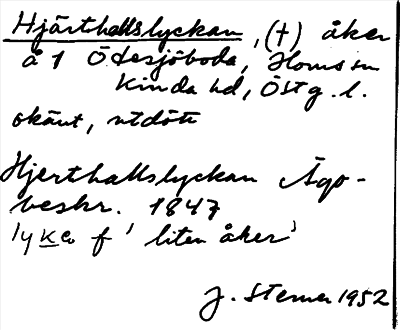 Hjärthallslyckan, (†) åker
å 1 Ödesjöboda, Horns sn
Kinda hd, Östg. l.
okänt, utdött
Hjerthallslyckan Ägo-
beskr. 1847
lyke f 'liten åker'
J. Sterner 1952